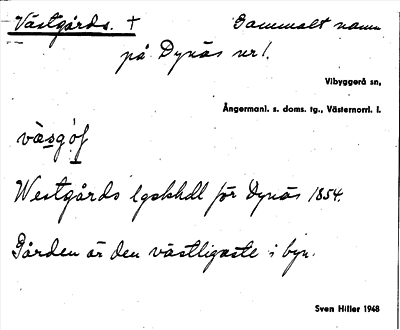 Västgårds. † Gammalt namn
på Dynäs nr 1.
Vibyggerå sn,
Ångermanl. s. doms. tg., Västernorrl. l.
Westgårds lgskhdl för Dynäs 1854.
Gården är den västligaste i byn.
Sven Hiller 1948